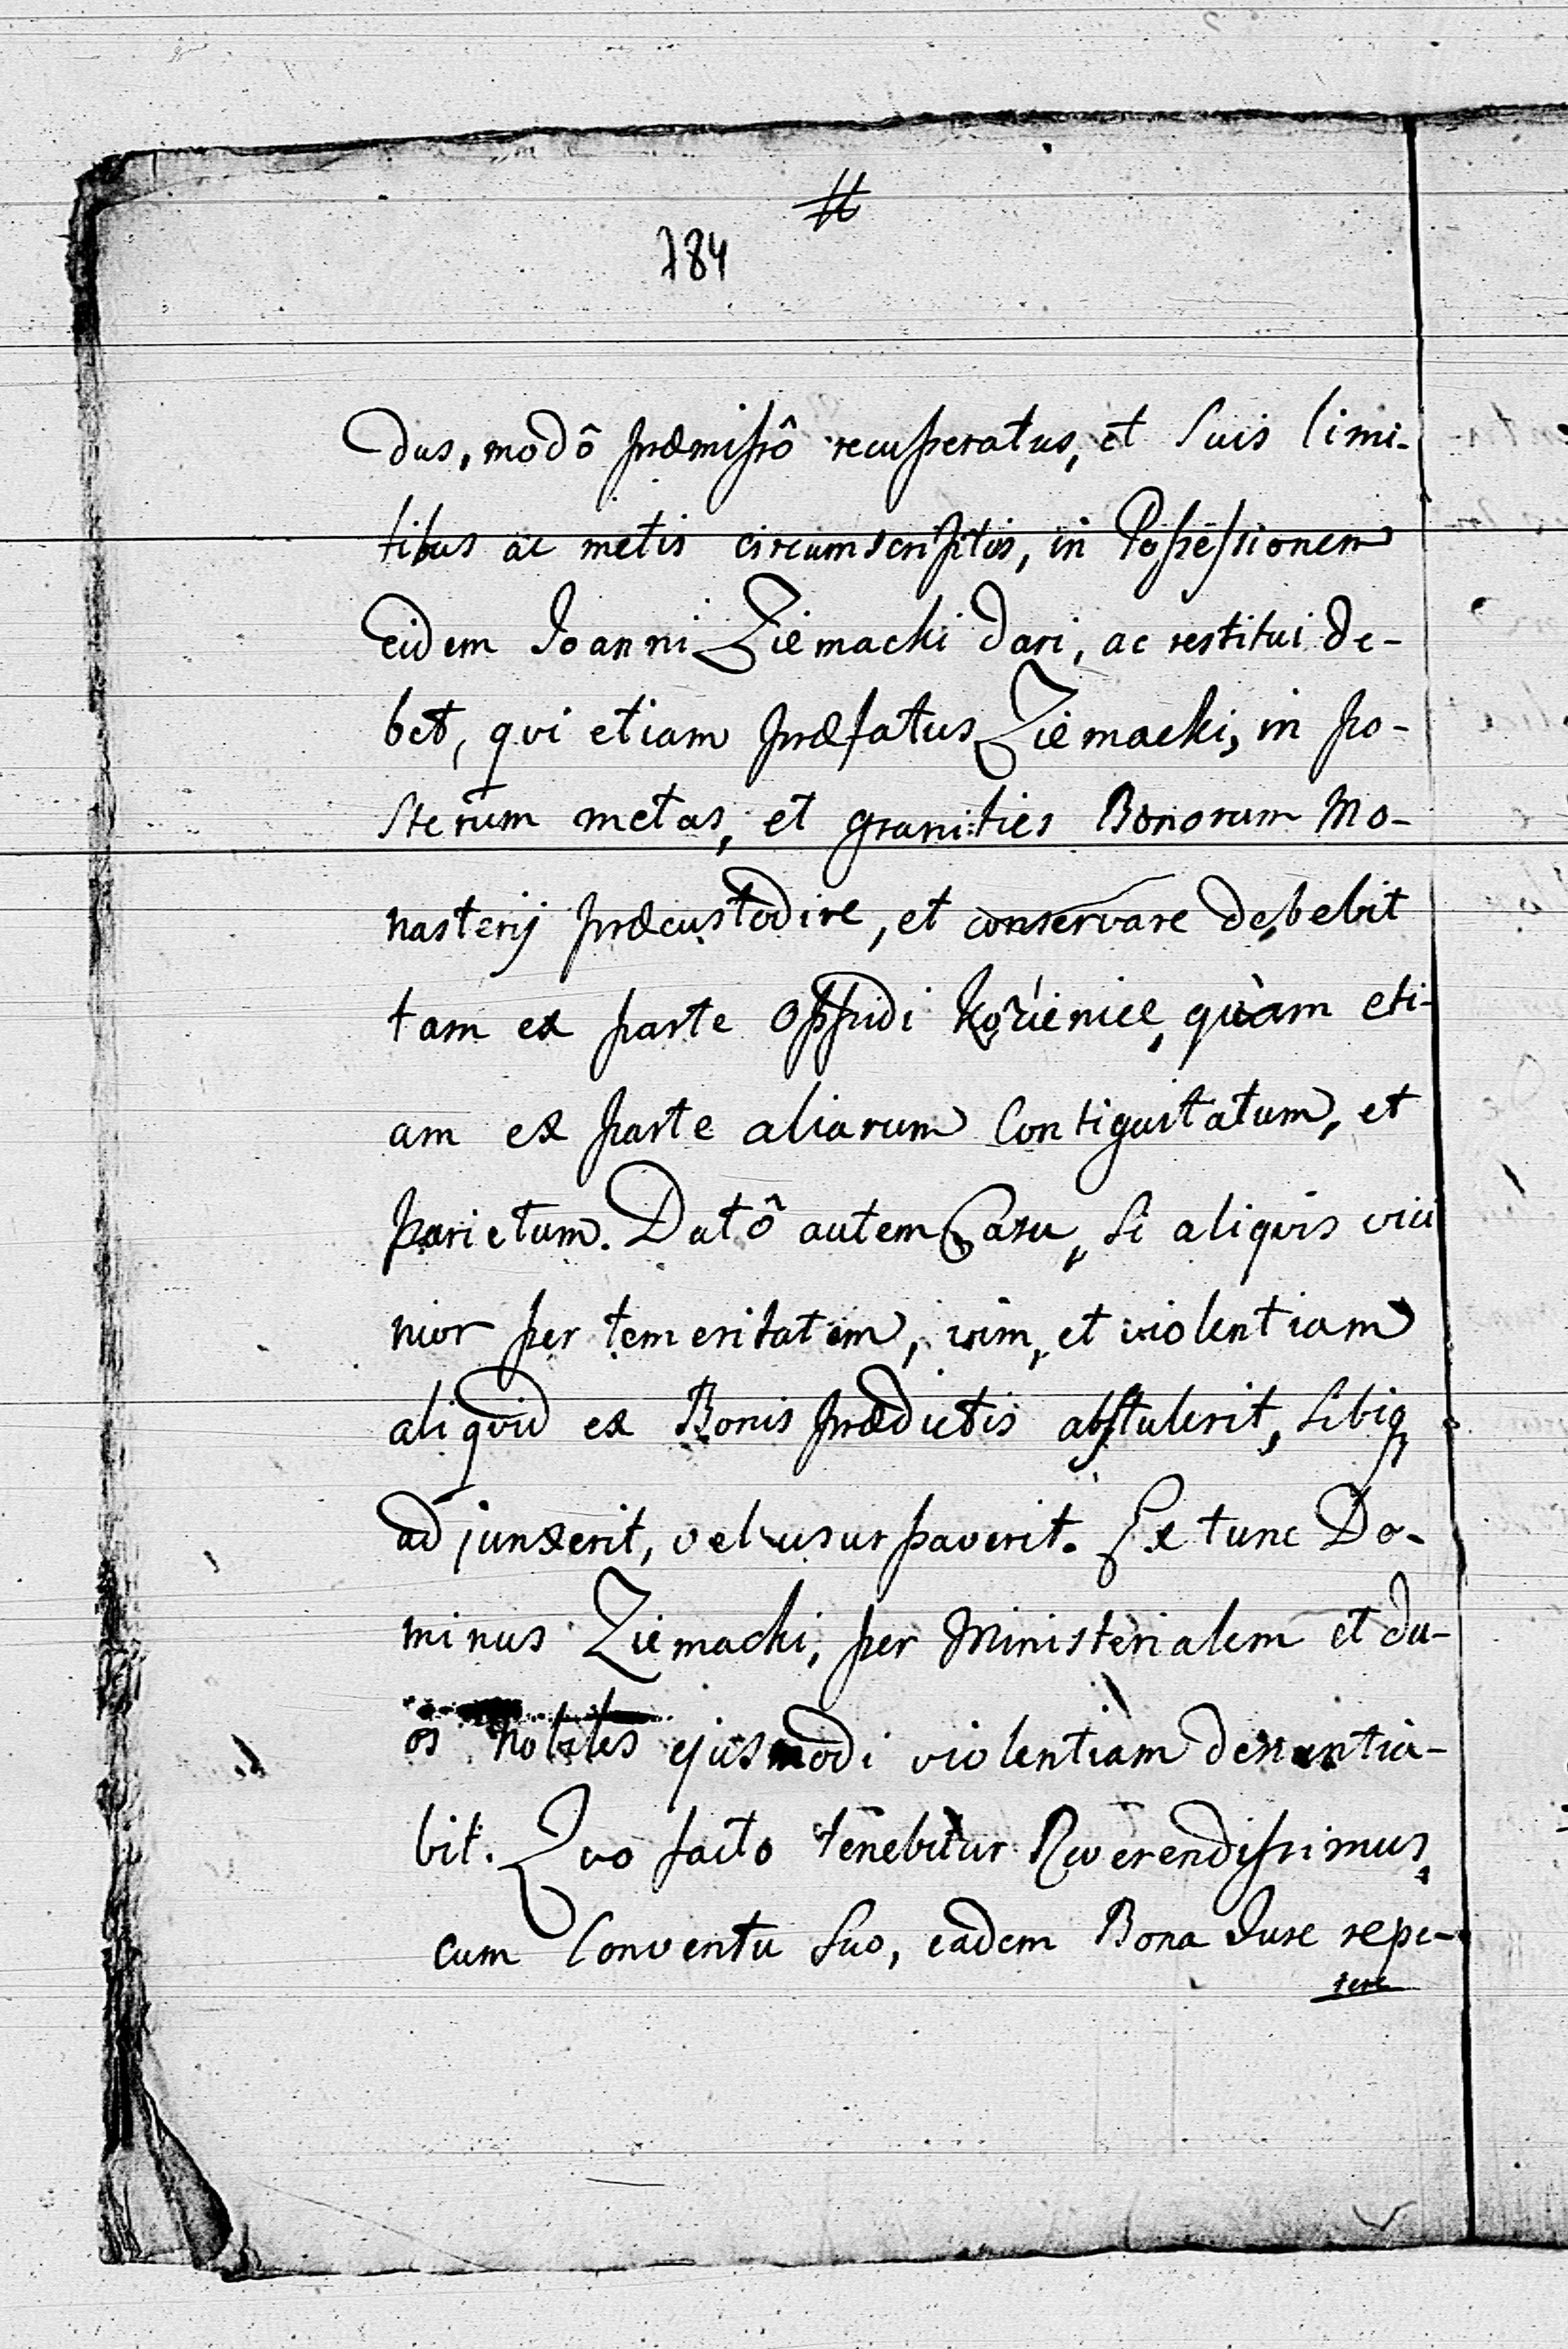 #
784
dus, modô præmissô recuperatus, et suis limi-
tibus ac metis circumscriptus, in Possessionem
Eidem Joanni Ziemacki dari, ac restitui de-
bet, qui etiam præfatus Ziemacki, in po-
sterum metas, et granities Bonorum Mo-
nasterij præcustodire, et conservare debebit
tam ex parte Oppidi Kozienice, quàm eti-
am ex parte aliarum Contiguitatum, et
parietum. Datô autem Casu, si aliquis vici
nior per temeritatem, vim, et violentiam
aliquid ex Bonis prædictis abstulerit, sibiq
adjunxerit, vel usurpaverit. Ex tunc Do-
minus Ziemacki, per Ministerialem et du-
os nobiles ejusmodi violentiam denuntia-
bit. Quo facto tenebitur Reverendissimus,
cum Conventu suo, eadem Bona Jure repe-
tere